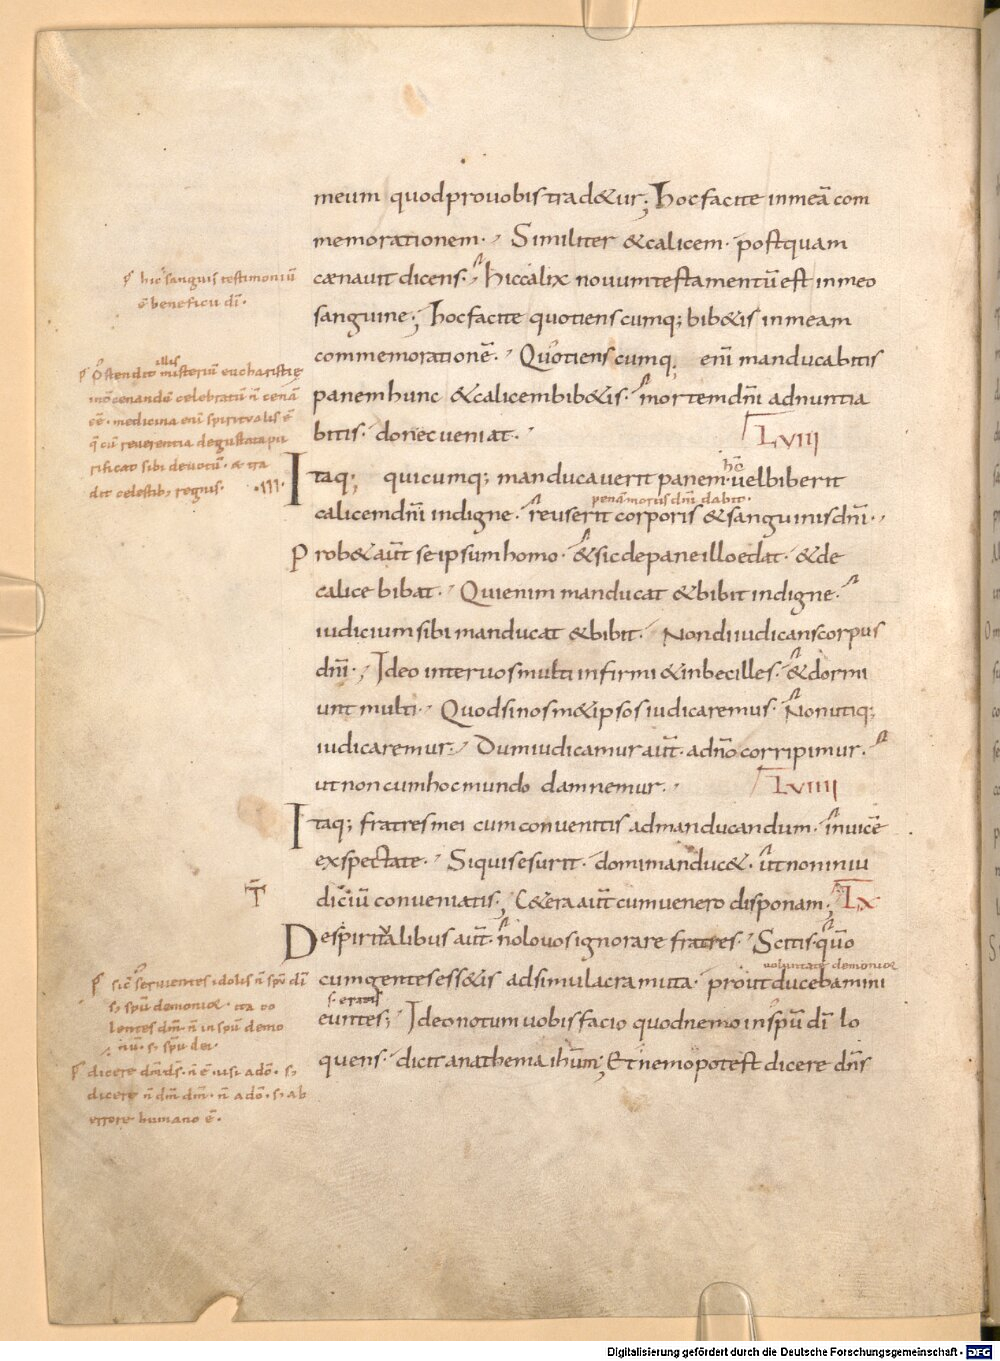 meum quod pro uobis trad&ur; hoc facite in meā com
memorationem· Similiter &calicem· postquam
cænauit dicens· hic calix nouum testamentū est in meo
sanguine; hoc facite quotienscumq; bib&is in meam
commemorationē· Quotienscumq; enī manducabitis
panem hunc &calicem bib&is· mortem dn̄i adnuntia
bitis· donec ueniat·
LVIII
Itaq; quicumq; manducauerit panem· uel biberit
hō
calicem dn̄i indigne· reus erit corporis &sanguinis dn̄i·
penā mortis dn̄i dabit·
Prob&aūt seipsum homo· &sic de pane illo edat· &de
calice bibat· Qui enim manducat &bibit indigne·
iudicium sibi manducat &bibit· Non diiudicans corpus
dn̄i· Ideo inter uos multi infirmi &inbecilles· &dormi
unt multi· Quod si nosm&ipsos iudicaremus· Non utiq;
iudicaremur· Dum iudicamur aūt· a dn̄o corripimur·
ut non cum hoc mundo damnemur·
LVIIII
Itaq; fratres mei cum conuenitis ad manducandum· inuicē
exspectate· Si quis esurit· domi manduc&· ut non in iu
diciū conueniatis; C&era aūt cum uenero disponam; LX
De spiritalibus aūt· nolo uos ignorare fratres· Scitis· qūo
cum gentes ess&is ad simulacra muta· prout ducebamini
uoluntate demonior
euntes; Ideo notum uobis facio quod nemo in sp̄u dī lo
s· eratis
quens· dicit anathema ih̄um; Et nemo potest dicere dn̄s
hic sanguis testimoniū
ē beneficii dī·
Ostendit illis misteriū eucharistię
celebratū n̄ cenā
ēē· medicina enī spiritualis ē
q̄ cū reuerentia degustata pu
rificat sibi deuotū· & tra
dit celestib; regnis·
·III·
sic seruientes idolis n̄ sp̄u dī
s; sp̄u demonior ita co
lentes dm̄· n̄ in sp̄u demo
niū· s; sp̄u dei·
s;
dicere n̄ dm̄ dm̄· n̄ a dō· s; ab
errore humano ē·